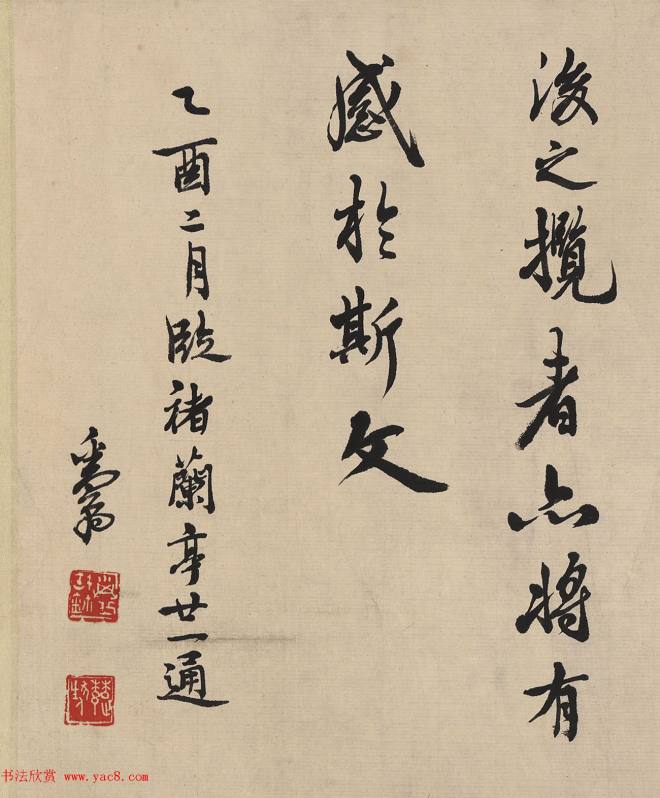 後之攬者亦將有
感於斯文
乙酉二月臨褚蘭亭廿一通
书法欣赏 www.yac8.com